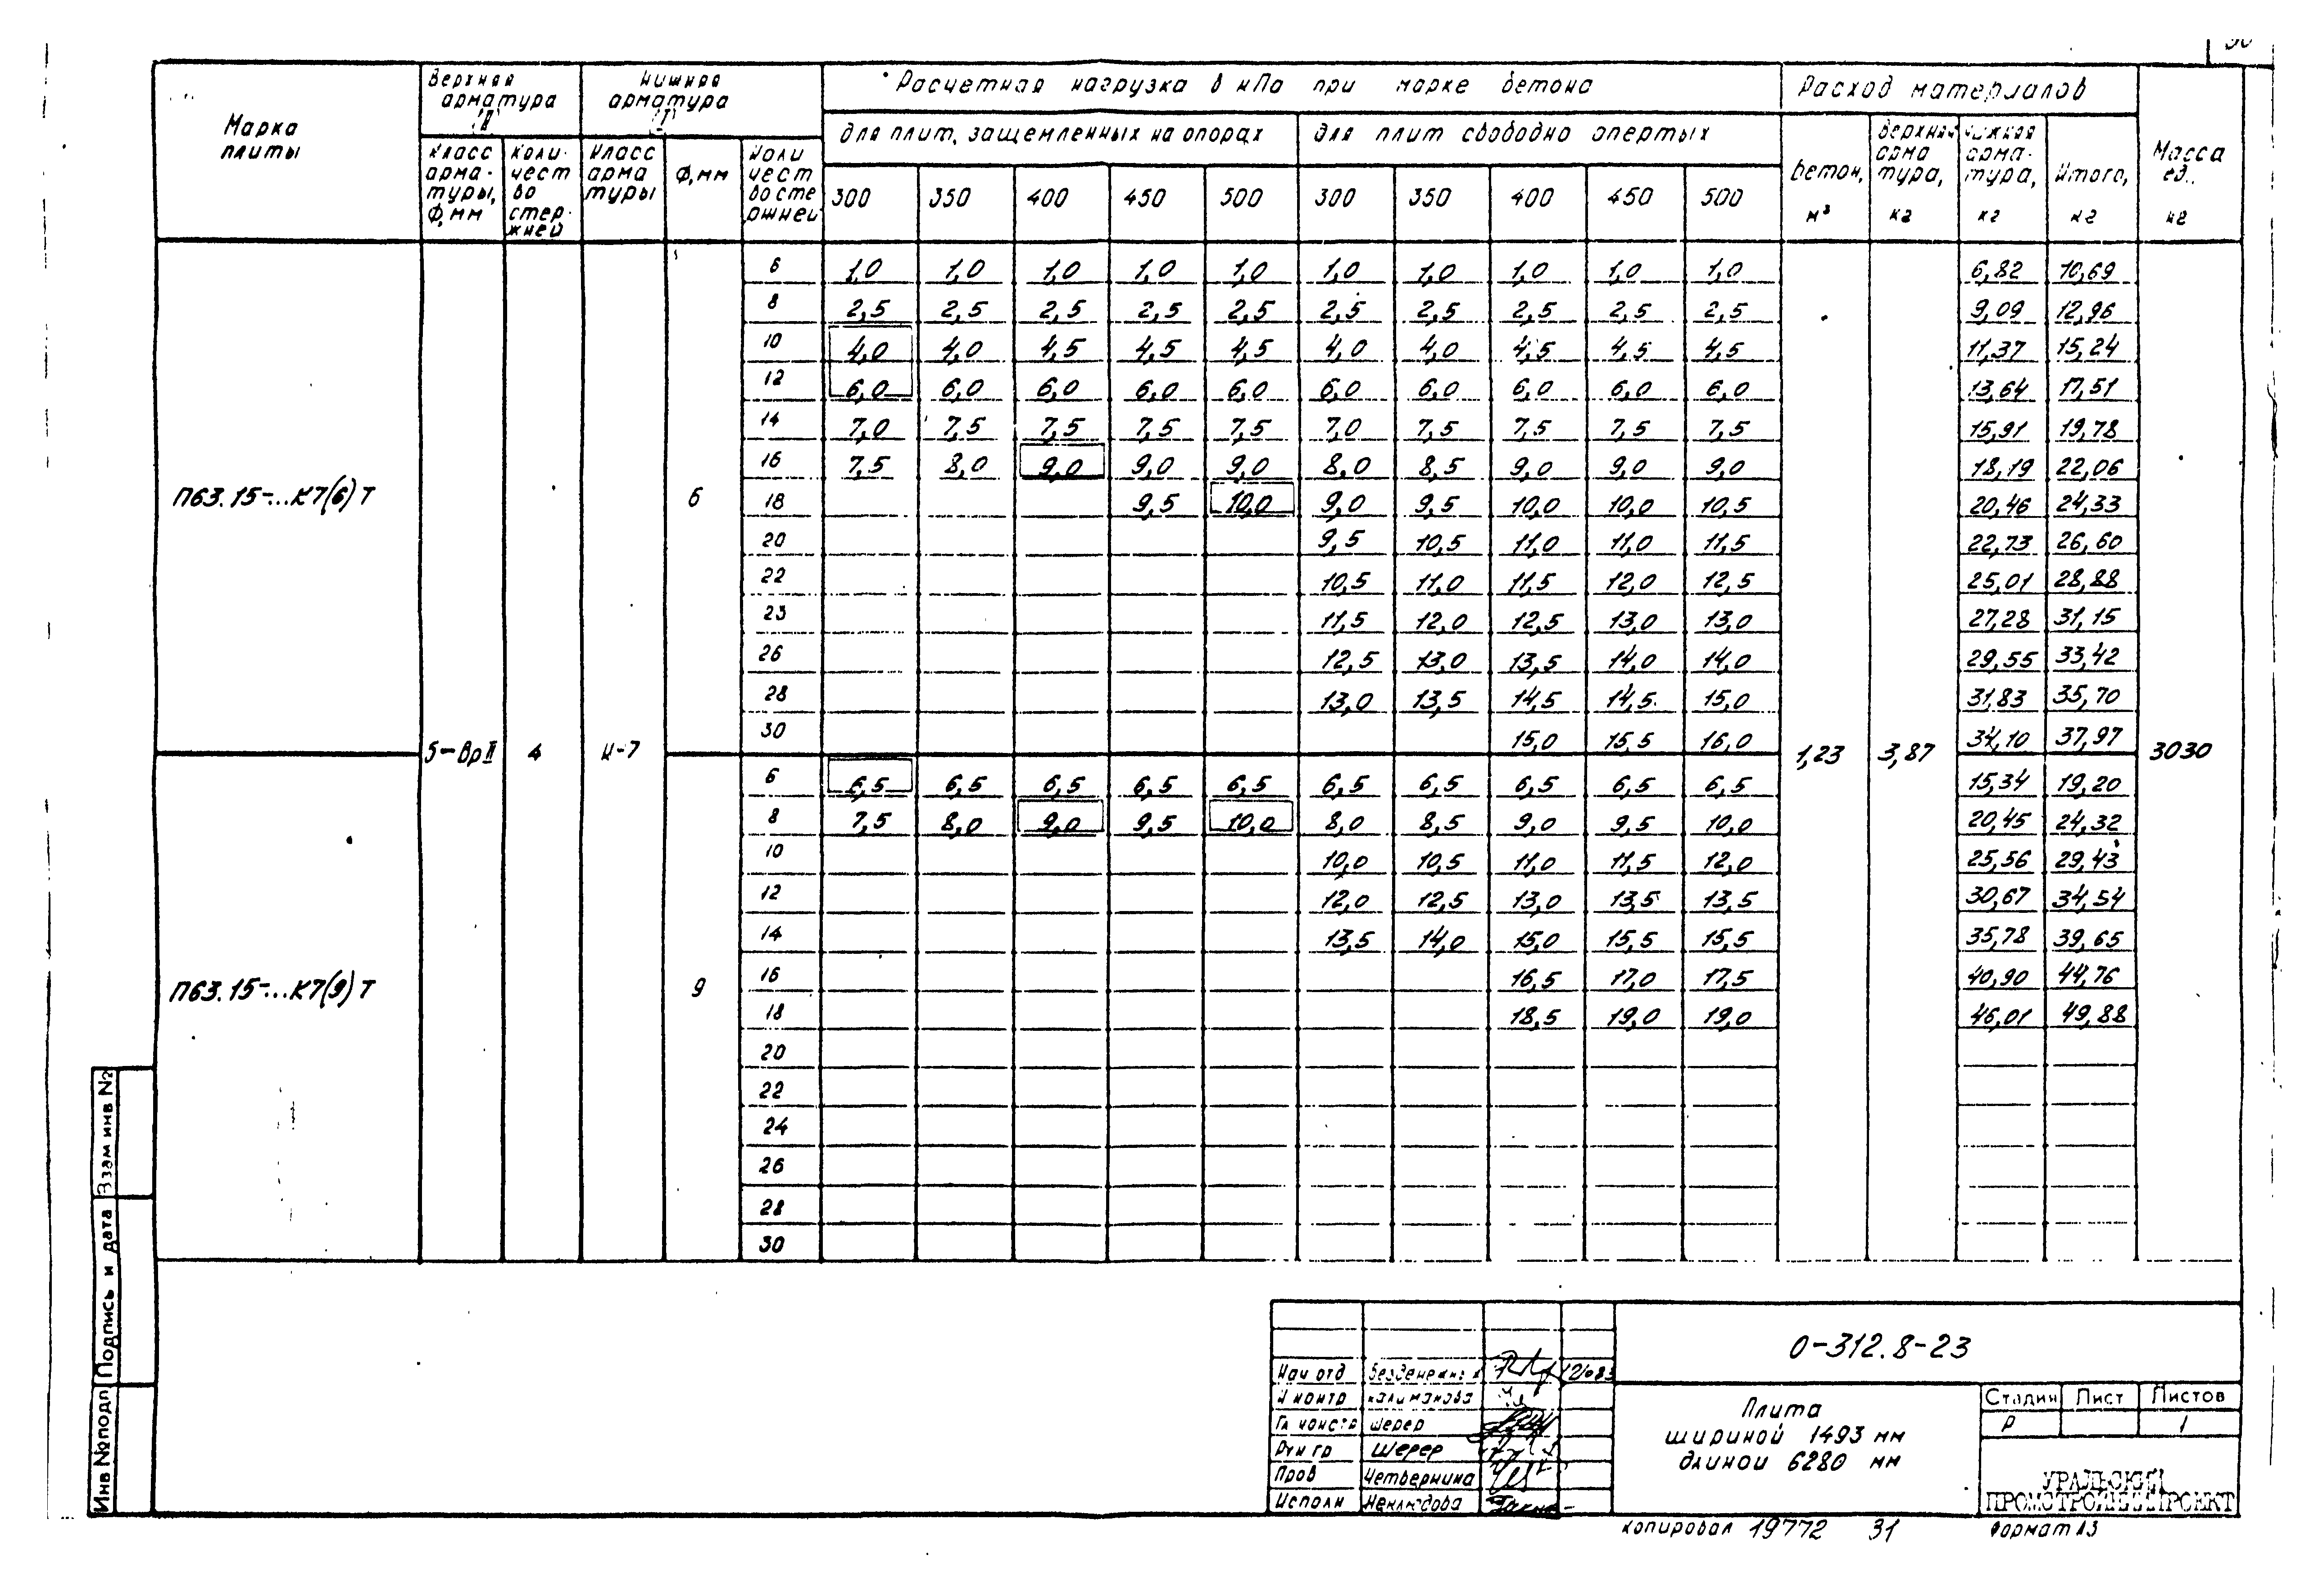 Марка плиты
Верхняя арматура (II)
Нижняя арматура (I)
Расчетная нагрузка в кПа при марке бетона
Расход материалов
Масса ед., кг
для плит, защемленных на опорах
для плит свободно опертых
Класс арматуры, Ф,мм
Количество стержней
Класс арматуры
Ф,мм
Количество стержней
300 350 400 450 500 300 350 400 450 500
Бетон, м³
Верхняя арматура, кг
Нижняя арматура, кг
Итого, кг
П63.15-...К7(6)Т
5-ВрII 4 К-7
6
6 1,0 1,0 1,0 1,0 1,0 1,0 1,0 1,0 1,0 1,0 6,82 10,69
8 2,5 2,5 2,5 2,5 2,5 2,5 2,5 2,5 2,5 2,5 9,09 12,96
10 4,0 4,0 4,5 4,5 4,5 4,0 4,0 4,5 4,5 4,5 11,37 15,24
12 6,0 6,0 6,0 6,0 6,0 6,0 6,0 6,0 6,0 6,0 13,64 17,51
14 7,0 7,5 7,5 7,5 7,5 7,0 7,5 7,5 7,5 7,5 15,91 19,78
16 7,5 8,0 9,0 9,0 9,0 8,0 8,5 9,0 9,0 9,0 18,19 22,06
18 9,5 10,0 9,0 9,5 10,0 10,0 10,5 20,46 24,33
20 9,5 10,5 11,0 11,0 11,5 22,73 26,60
22 10,5 11,0 11,5 12,0 12,5 25,01 28,88
23 11,5 12,0 12,5 13,0 13,0 27,28 31,15
26 12,5 13,0 13,5 14,0 14,0 29,55 33,42
28 13,0 13,5 14,5 14,5 15,0 31,83 35,70
30 15,0 15,5 16,0 34,10 37,97
1,23 3,87 3030
П63.15-...К7(9)Т
9
6 6,5 6,5 6,5 6,5 6,5 6,5 6,5 6,5 6,5 6,5 15,34 19,20
8 7,5 8,0 9,0 9,5 10,0 8,0 8,5 9,0 9,5 10,0 20,45 24,32
10 10,0 10,5 11,0 11,5 12,0 25,56 29,43
12 12,0 12,5 13,0 13,5 13,5 30,67 34,54
14 13,5 14,0 15,0 15,5 15,5 35,78 39,65
16 16,5 17,0 17,5 40,90 44,76
18 18,5 19,0 19,0 46,01 49,88
20
22
24
26
28
30
Взам инв №
Подпись и дата
Инв № подл
О-312.8-23
Нач отд
Н контр Калиманова
Гл констр Шерер
Рук гр Шерер
Пров Четвернина
Исполн Неклюдова
Плита
шириной 1493 мм
длиной 6280 мм
Стадия Лист Листов
Р 1
УРАЛЬСКИЙ
ПРОМСТРОЙНИИПРОЕКТ
Копировал 19772 31 Формат А3